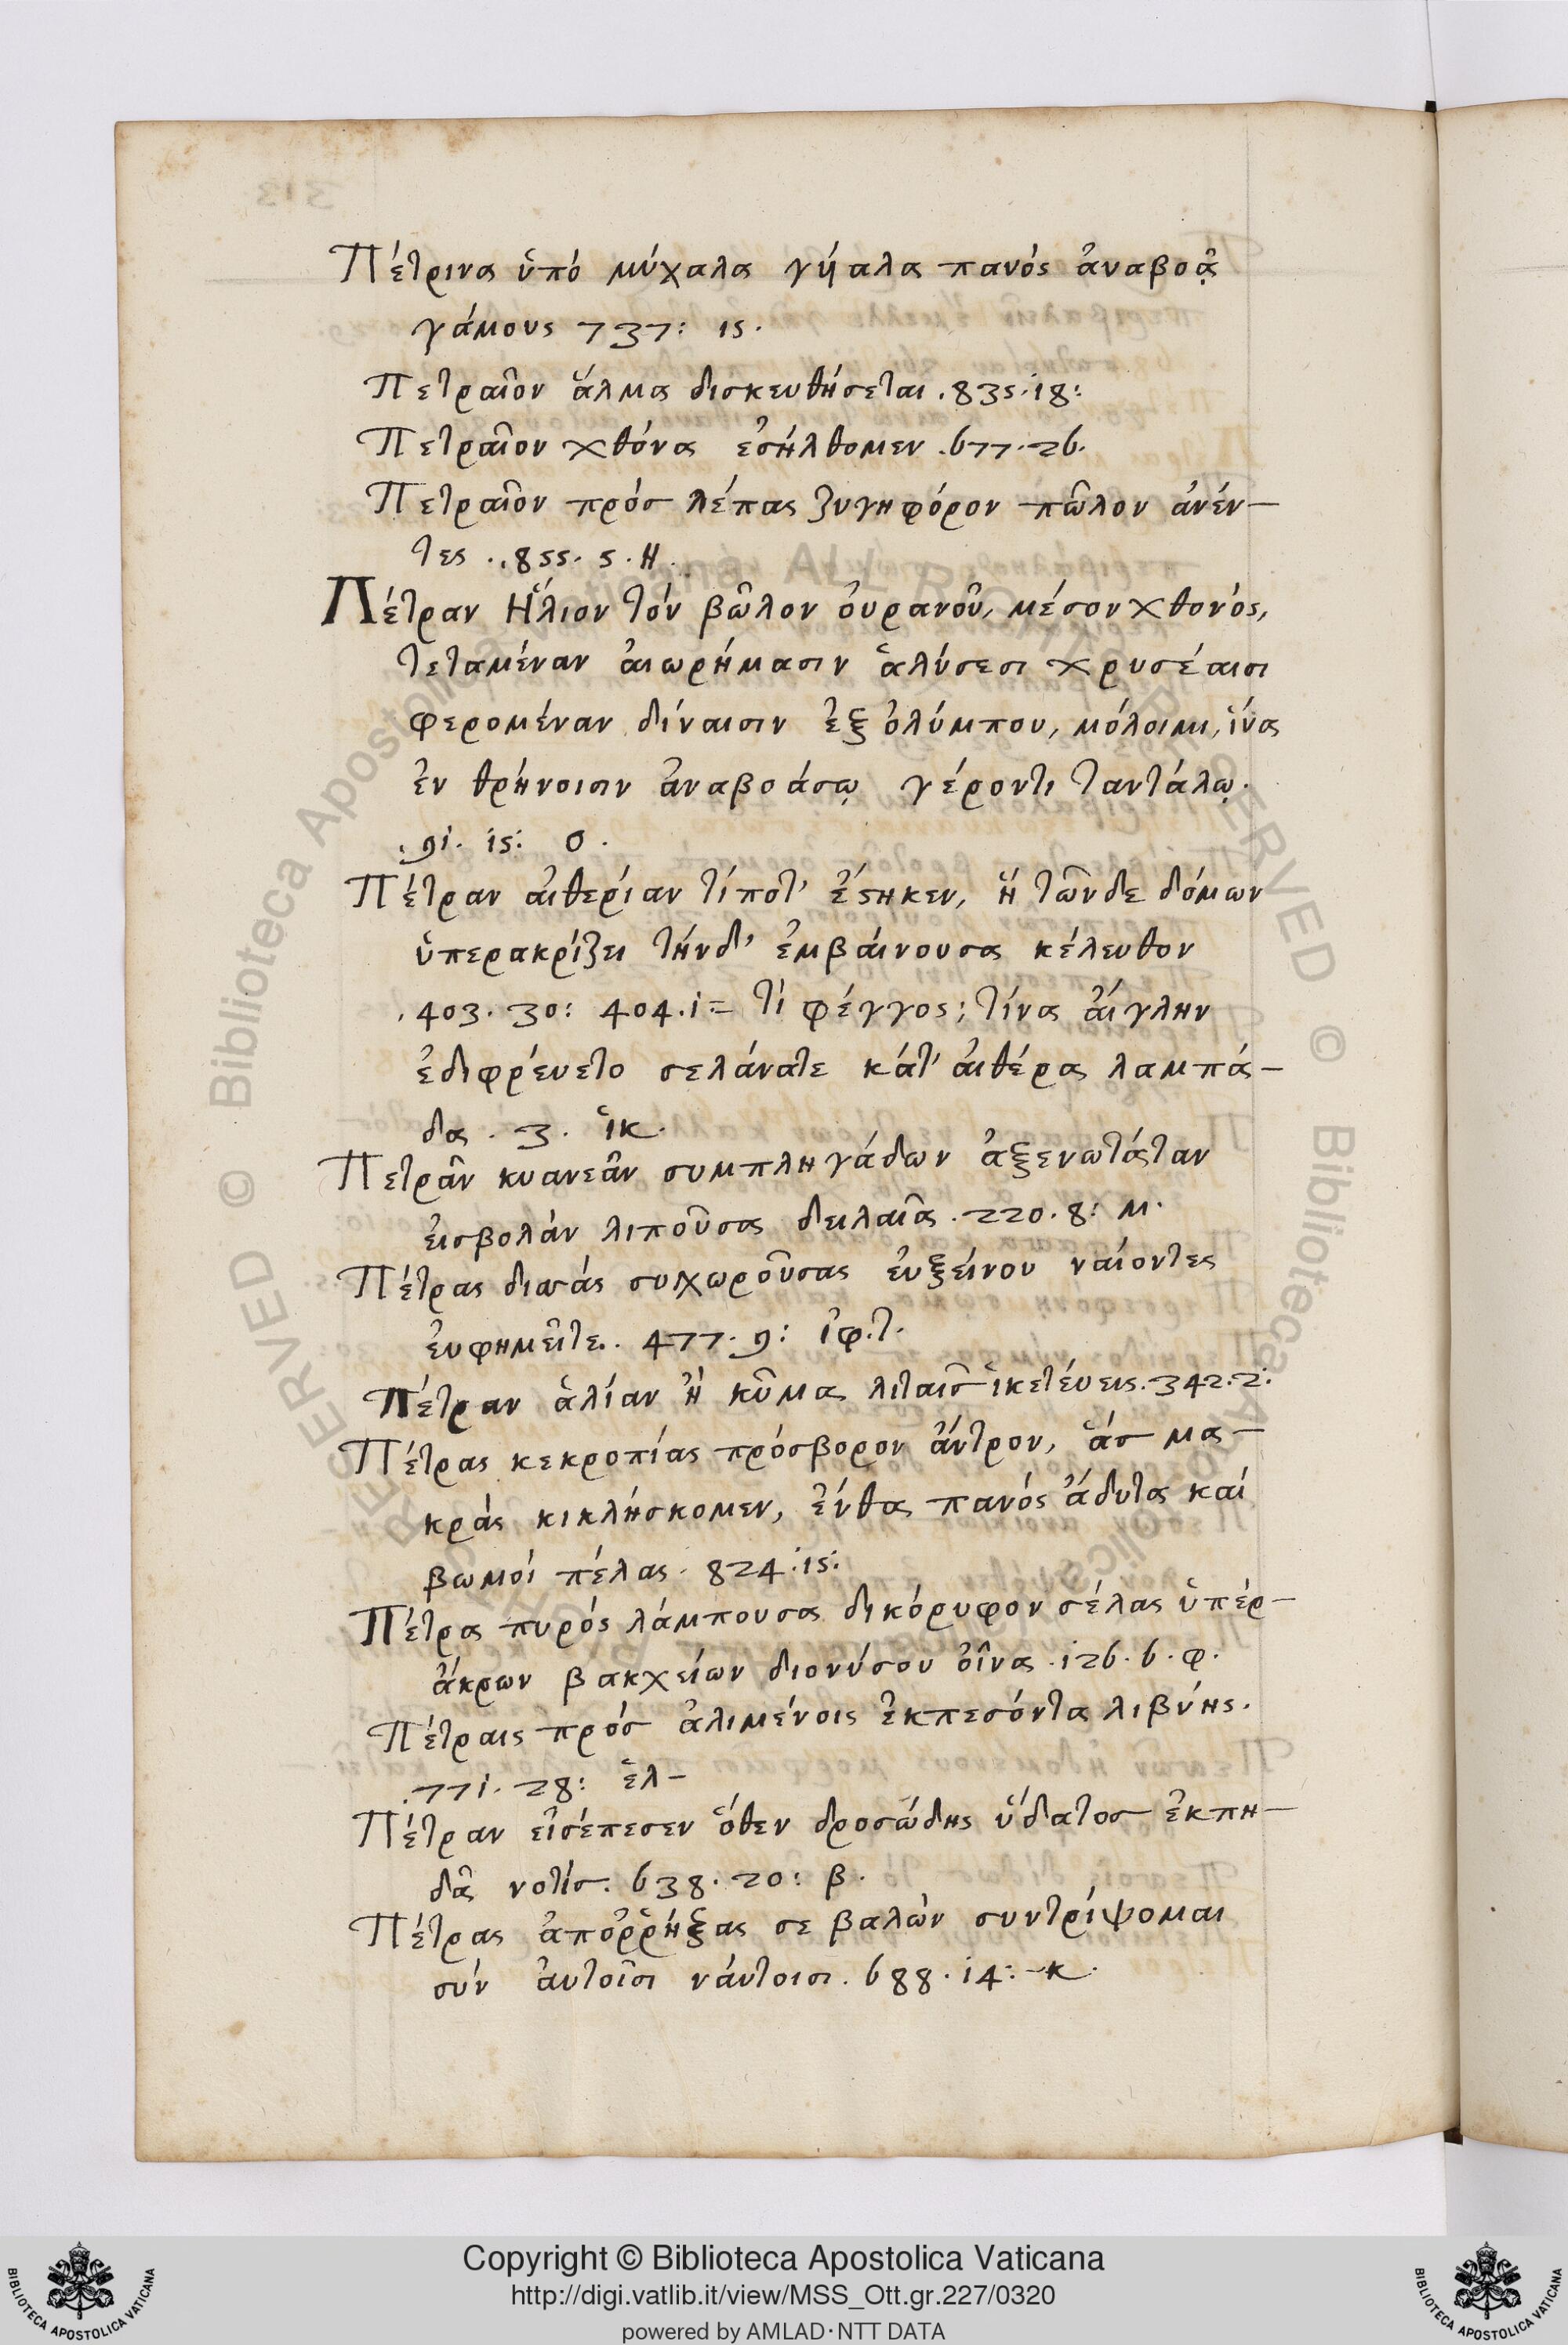 Πέτρινα ὑπό μύχαλα γύαλα πανός ἀναβοᾷ
γάμους 737: 15.
Πετραῖον ἅλμα δισκευθήσεται . 835. 18:
Πετραῖον χθόνα εἰσήλθομεν . 677. 26.
Πετραῖον πρόσ λέπας ζυγηφόρον πῶλον ἀνέν-
τες . . 855. 5. Η.
Πέτραν Ἥλιον τόν βῶλον ὀυρανοῦ, μέσον χθονός,
τεταμέναν ἀιωρήμασιν ἁλύσεσι χρυσέαισι
φερομέναν δίναισιν ἐξ ὀλύμπου, μόλοιμι, ἵνα
ἐν θρήνοισιν ἀναβοάσω γέροντι ταντάλῳ.
. 91. 15: ο .
Πέτραν ἀιθερίαν τίποτ' ἔστηκεν, ἤ τῶνδε δόμων
ὑπερακρίζει τήνδ' ἐμβάινουσα κέλευθον
. 403. 30: 404. 1:= τί φέγγος; τίνα ἄιγλην
ἐδιφρέυετο σελάνατε κάτ' ἀιθέρα λαμπά-
δα . 3. ἱκ.
Πετρᾶν κυανεᾶν συμπληγάδων ἀξενωτάταν
ἐισβολάν λιποῦσα δειλαιᾶ . 220. 8: Μ.
Πέτρας δισσάς συγχωροῦσας ἐυξείνου νάιοντες
ἐυφημεῖτε.. 477. 9: ἰφ. τ.
Πέτραν ἁλίαν ἤ κῦμα λιταῖσ ἱκετέυεις. 342. 2:
Πέτρας κεκροπίας πρόσβορον ἄντρον, ἅσ μα-
κράς κικλήσκομεν, ἔνθα πανός ἄδυτα καί
βωμοί πέλας . 824. 15:
Πέτρα πυρός λάμπουσα δικόρυφον σέλας ὑπέρ-
ἄκρων βακχείων διονύσου ὀῖνα . 126. 6. φ.
Πέτραις πρόσ ἀλιμένοις ἐκπεσόντα λιβύης.
. 771. 28: ἑλ-
Πέτραν εἰσέπεσεν ὅθεν δροσώδης ὕδατοσ ἐκπη-
δᾶ νοτίσ. 638. 20: β.
Πέτρας ἀποῤῥήξας σε βαλών συντρίψομαι
σύν ἀυτοῖσι νάυτοισι . 688. 14:- κ.
313
© Biblioteca Apostolica Vaticana ALL RIGHTS RESERVED
Copyright © Biblioteca Apostolica Vaticana
http://digi.vatlib.it/view/MSS_Ott.gr.227/0320
powered by AMLAD·NTT DATA
BIBLIOTECA APOSTOLICA VATICANA
BIBLIOTECA APOSTOLICA VATICANA